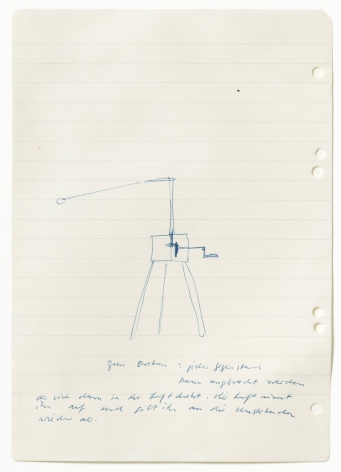 zum Drehen : jeder Gegenstand
kann angebracht werden
der sich dann in der Luft dreht. die Luft nimmt
ihn auf und gibt ihn an die Umstehenden
wieder ab.